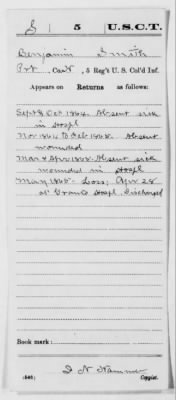 S 5 U.S.C.T.
Benjamin Smith
Pvt, Co. , 5 Reg't U. S. Col'd Inf.
Appears on
Returns as follows:
Sept & Oct 1864. Absent sick
in Hospl
Nov 1864 to Feb 1865. Absent
wounded
Mar & Apr 1865. Absent sick
wounded in Hospl
May 1865 - Loss; Apr 28
at Grant Hospl. Discharged
Book mark:
(546) Copyist.